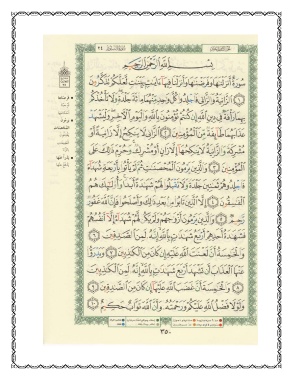 بِسْمِ اللَّهِ الرَّحْمَٰنِ الرَّحِيمِ
سُورَةٌ أَنزَلْنَاهَا وَفَرَضْنَاهَا وَأَنزَلْنَا فِيهَا آيَاتٍ بَيِّنَاتٍ لَّعَلَّكُمْ تَذَكَّرُونَ
﴿١﴾ الزَّانِيَةُ وَالزَّانِي فَاجْلِدُوا كُلَّ وَاحِدٍ مِّنْهُمَا مِائَةَ جَلْدَةٍ وَلَا تَأْخُذْكُم
بِهِمَا رَأْفَةٌ فِي دِينِ اللَّهِ إِن كُنتُمْ تُؤْمِنُونَ بِاللَّهِ وَالْيَوْمِ الْآخِرِ وَلْيَشْهَدْ
عَذَابَهُمَا طَائِفَةٌ مِّنَ الْمُؤْمِنِينَ ﴿٢﴾ الزَّانِي لَا يَنكِحُ إِلَّا زَانِيَةً أَوْ
مُشْرِكَةً وَالزَّانِيَةُ لَا يَنكِحُهَا إِلَّا زَانٍ أَوْ مُشْرِكٌ وَحُرِّمَ ذَٰلِكَ عَلَى
الْمُؤْمِنِينَ ﴿٣﴾ وَالَّذِينَ يَرْمُونَ الْمُحْصَنَاتِ ثُمَّ لَمْ يَأْتُوا بِأَرْبَعَةِ شُهَدَاءَ
فَاجْلِدُوهُمْ ثَمَانِينَ جَلْدَةً وَلَا تَقْبَلُوا لَهُمْ شَهَادَةً أَبَدًا وَأُولَٰئِكَ هُمُ
الْفَاسِقُونَ ﴿٤﴾ إِلَّا الَّذِينَ تَابُوا مِن بَعْدِ ذَٰلِكَ وَأَصْلَحُوا فَإِنَّ اللَّهَ غَفُورٌ
رَّحِيمٌ ﴿٥﴾ وَالَّذِينَ يَرْمُونَ أَزْوَاجَهُمْ وَلَمْ يَكُن لَّهُمْ شُهَدَاءُ إِلَّا أَنفُسُهُمْ
فَشَهَادَةُ أَحَدِهِمْ أَرْبَعُ شَهَادَاتٍ بِاللَّهِ إِنَّهُ لَمِنَ الصَّادِقِينَ ﴿٦﴾
وَالْخَامِسَةُ أَنَّ لَعْنَتَ اللَّهِ عَلَيْهِ إِن كَانَ مِنَ الْكَاذِبِينَ ﴿٧﴾ وَيَدْرَأُ
عَنْهَا الْعَذَابَ أَن تَشْهَدَ أَرْبَعَ شَهَادَاتٍ بِاللَّهِ إِنَّهُ لَمِنَ الْكَاذِبِينَ
﴿٨﴾ وَالْخَامِسَةَ أَنَّ غَضَبَ اللَّهِ عَلَيْهَا إِن كَانَ مِنَ الصَّادِقِينَ ﴿٩﴾
وَلَوْلَا فَضْلُ اللَّهِ عَلَيْكُمْ وَرَحْمَتُهُ وَأَنَّ اللَّهَ تَوَّابٌ حَكِيمٌ ﴿١٠﴾
٣٥٠